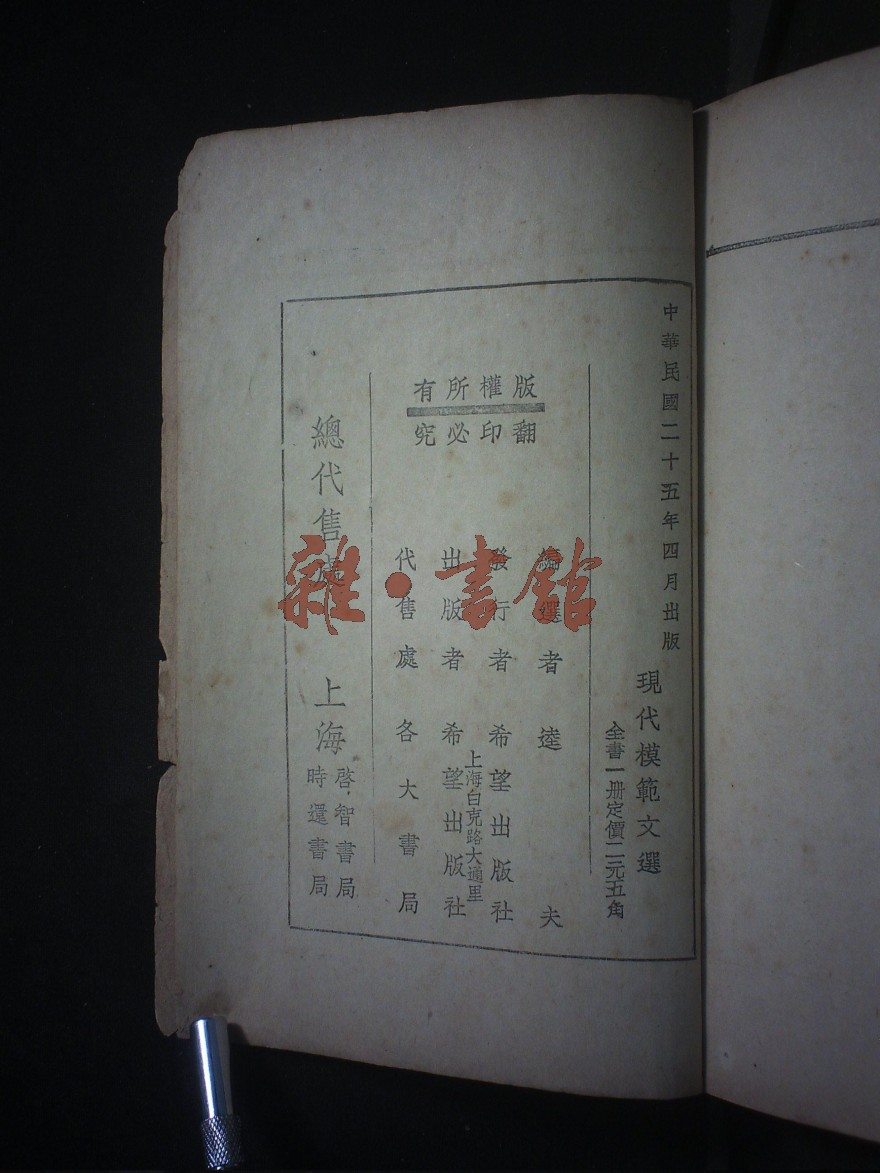 中華民國二十五年四月出版
現代模範文選
全書一册定價二元五角
版權所有
翻印必究
編選者 逵夫
發行者 希望出版社
上海白克路大通里
出版者 希望出版社
代售處 各大書局
總代售處 上海
啓智書局
時還書局
雜·書館